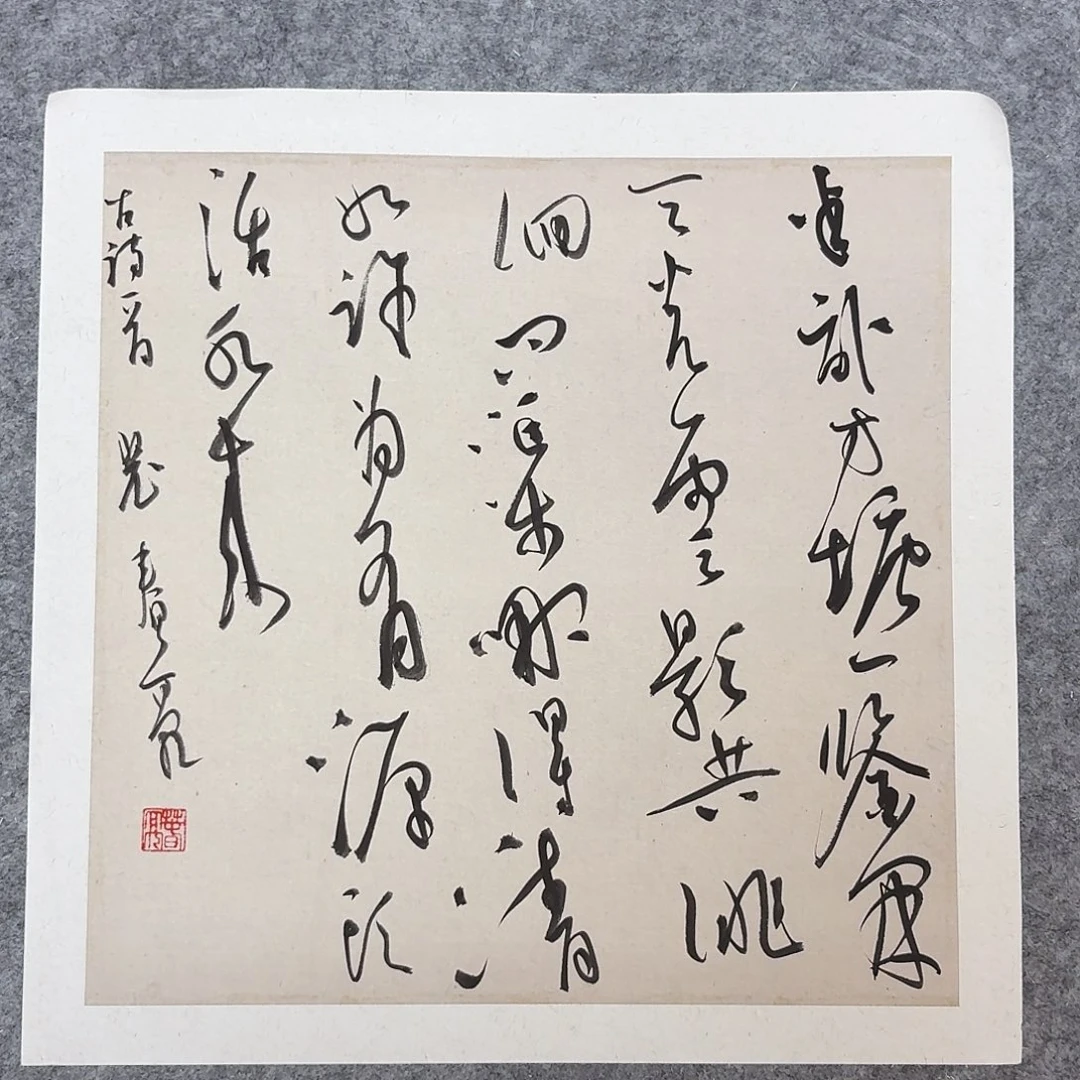 半畝方塘一鑒開
天光雲影共徘
徊問渠哪得清
如許為有源頭
活水來
古詩一首 春